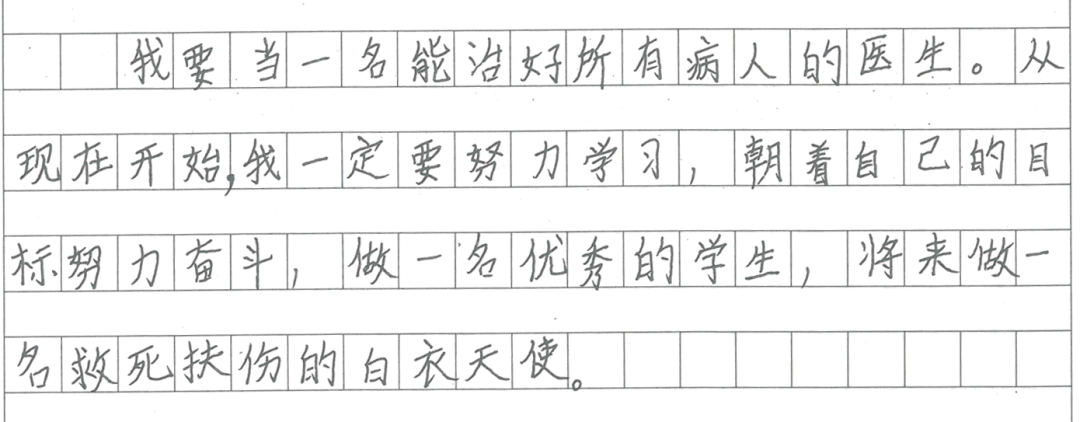 我要当一名能治好所有病人的医生。从
现在开始,我一定要努力学习，朝着自己的目
标努力奋斗，做一名优秀的学生，将来做一
名救死扶伤的白衣天使。